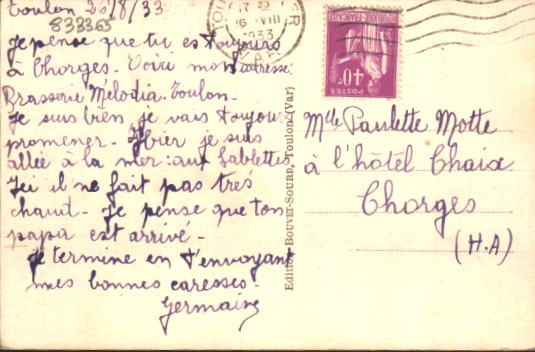 Toulon 26/8/33
833365
Je pense que tu es toujours
à Chorges - Voici mon adresse:
Brasserie Mélodia. Toulon -
Je suis bien je vais toujours
promener - Hier je suis
allée à la mer: aux Sablettes
Ici il ne fait pas très
chaud - Je pense que ton
papa est arrivé -
Je termine en t'envoyant
mes bonnes caresses -
Germaine
Edition BOUVET-SOURD, Toulon (Var)
VIII
1933
VAR
POSTES
40c
Mlle Paulette Motte
à l'hôtel Chaix
Chorges
(H.A)